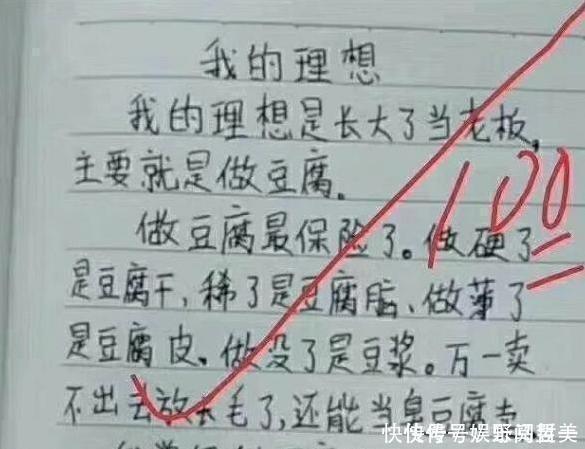 我的理想
我的理想是长大了当老板,
主要就是做豆腐。
做豆腐最保险了。做硬了
是豆腐干,稀了是豆腐脑、做薄了
是豆腐皮、做没了是豆浆。万一卖
不出去放长毛了,还能当臭豆腐卖
100
快传号娱